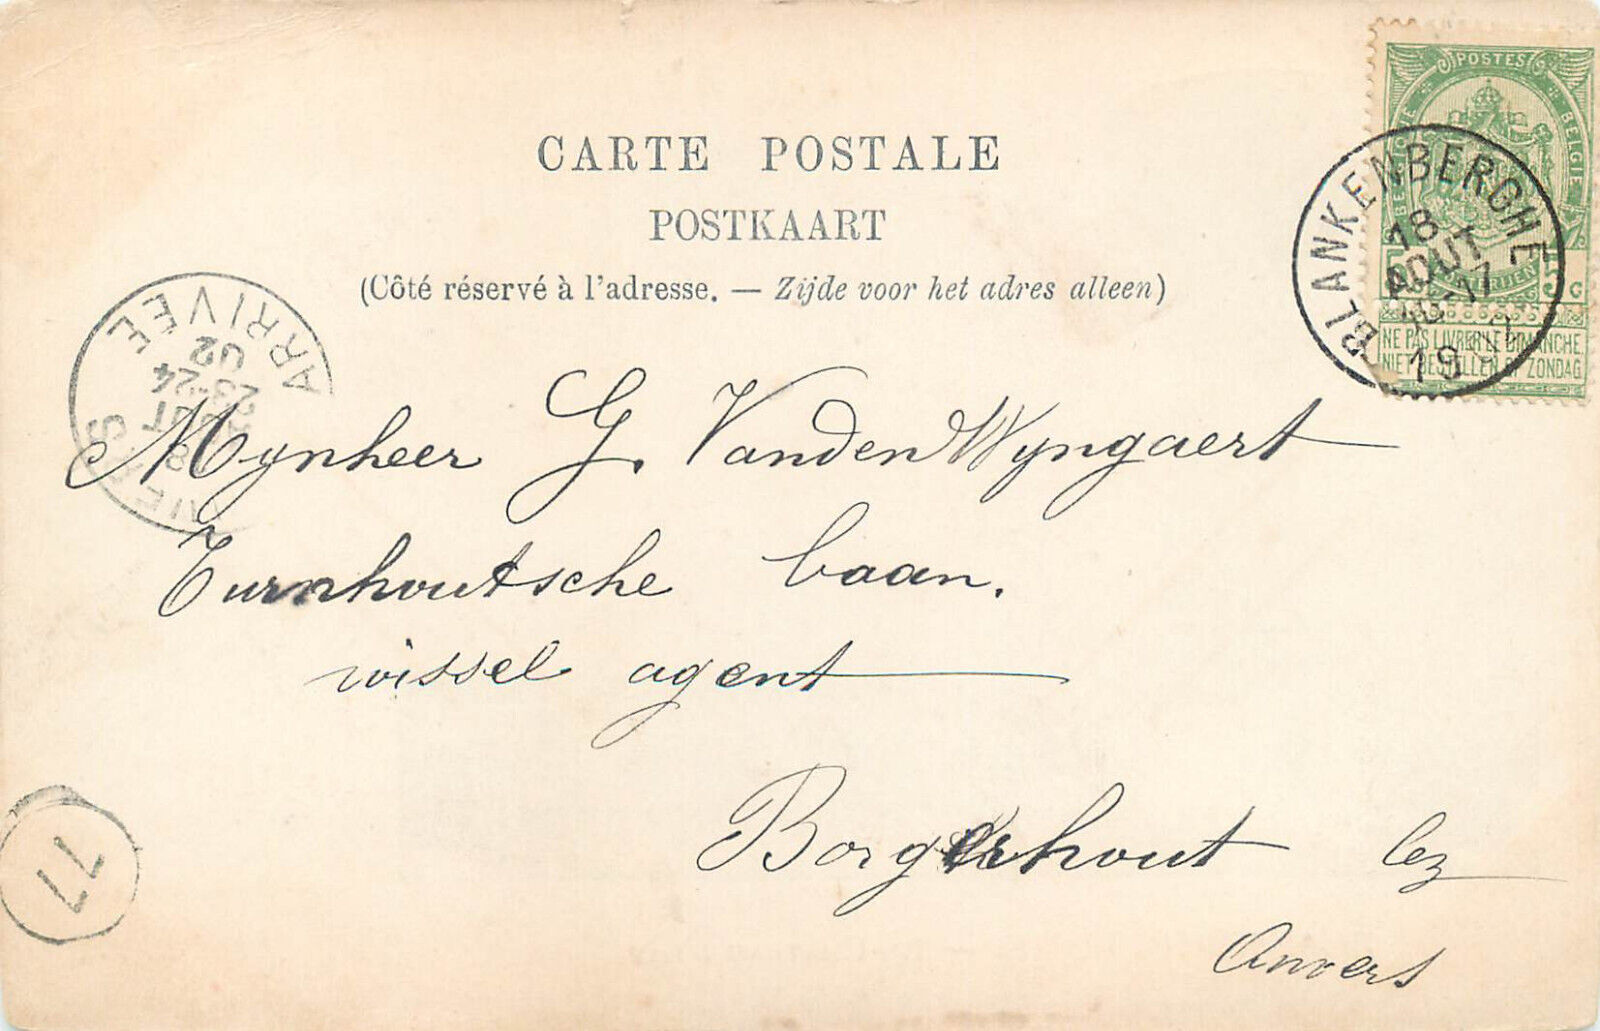 CARTE POSTALE
POSTKAART
(Côté réservé à l'adresse. — Zijde voor het adres alleen)
POSTES
BELGIQUE BELGIE
5 5 c
NE PAS LIVRER LE DIMANCHE
NIET BESTELLEN OP ZONDAG
BLANKENBERGHE
18
AOUT
19
ARRIVEE
23-24
02
Mynheer G. VandenWyngaert
Turnhoutsche baan.
wissel agent
Borgerhout lez
Anvers
77